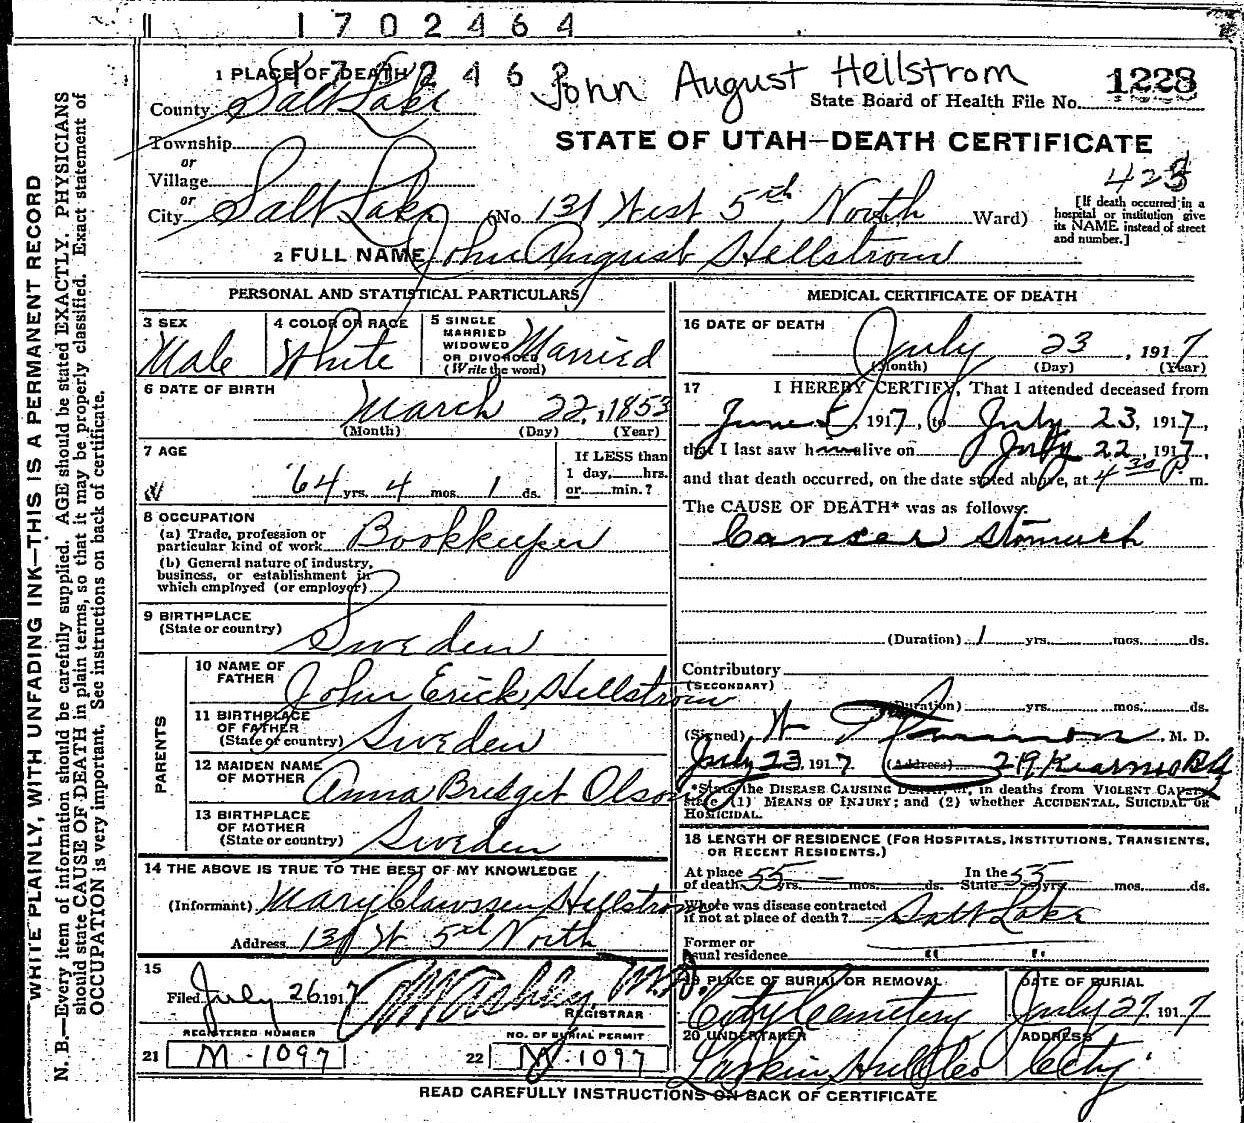 1702464
1 PLACE OF DEATH
John August Hellstrom
1228
County Salt Lake
State Board of Health File No.
STATE OF UTAH—DEATH CERTIFICATE
Township
or
Village
or
City Salt Lake (No. 131 West 5th North Ward)
423
[If death occurred in a
hospital or institution give
its NAME instead of street
and number.]
2 FULL NAME John August Hellstrom
PERSONAL AND STATISTICAL PARTICULARS
3 SEX
Male
4 COLOR OR RACE
White
5 SINGLE
MARRIED
WIDOWED
OR DIVORCED
(Write the word)
Married
6 DATE OF BIRTH
March 22, 1853
(Month) (Day) (Year)
7 AGE
64 yrs. 4 mos. 1 ds.
If LESS than
1 day,......hrs.
or......min.?
8 OCCUPATION
(a) Trade, profession or
particular kind of work Bookkeeper
(b) General nature of industry,
business, or establishment in
which employed (or employer)
9 BIRTHPLACE
(State or country)
Sweden
PARENTS
10 NAME OF
FATHER
John Erick Hellstrom
11 BIRTHPLACE
OF FATHER
(State or country)
Sweden
12 MAIDEN NAME
OF MOTHER
Anna Bridget Olson
13 BIRTHPLACE
OF MOTHER
(State or country)
Sweden
14 THE ABOVE IS TRUE TO THE BEST OF MY KNOWLEDGE
(Informant) Mary Clawssen Hellstrom
Address 131 W 5th North
15
Filed July 26 1917
REGISTRAR
REGISTERED NUMBER
21 M-1097
NO. OF BURIAL PERMIT
22 M-1097
MEDICAL CERTIFICATE OF DEATH
16 DATE OF DEATH
July 23, 1917
(Month) (Day) (Year)
17 I HEREBY CERTIFY, That I attended deceased from
June 5, 1917, to July 23, 1917,
that I last saw h alive on July 22, 1917,
and that death occurred, on the date stated above, at 4 30 P. m.
The CAUSE OF DEATH* was as follows:
Cancer Stomach
(Duration) 1 yrs. mos. ds.
Contributory
(SECONDARY)
(Duration) yrs. mos. ds.
(Signed) M. D.
July 23, 1917 (Address) 219 Kearns Bld
*State the DISEASE CAUSING DEATH, or, in deaths from VIOLENT CAUSES,
state (1) MEANS OF INJURY; and (2) whether ACCIDENTAL, SUICIDAL OR
HOMICIDAL.
18 LENGTH OF RESIDENCE (FOR HOSPITALS, INSTITUTIONS, TRANSIENTS,
OR RECENT RESIDENTS.)
At place
of death 55 yrs. — mos. ds.
In the
State 55 yrs. mos. ds.
Where was disease contracted
if not at place of death? Salt Lake
Former or
usual residence " "
19 PLACE OF BURIAL OR REMOVAL
City Cemetery
DATE OF BURIAL
July 27, 1917
20 UNDERTAKER
Larkin Hull Co
ADDRESS
City
READ CAREFULLY INSTRUCTIONS ON BACK OF CERTIFICATE
WRITE PLAINLY, WITH UNFADING INK—THIS IS A PERMANENT RECORD
N. B.—Every item of information should be carefully supplied. AGE should be stated EXACTLY. PHYSICIANS
should state CAUSE OF DEATH in plain terms, so that it may be properly classified. Exact statement of
OCCUPATION is very important. See instructions on back of certificate.